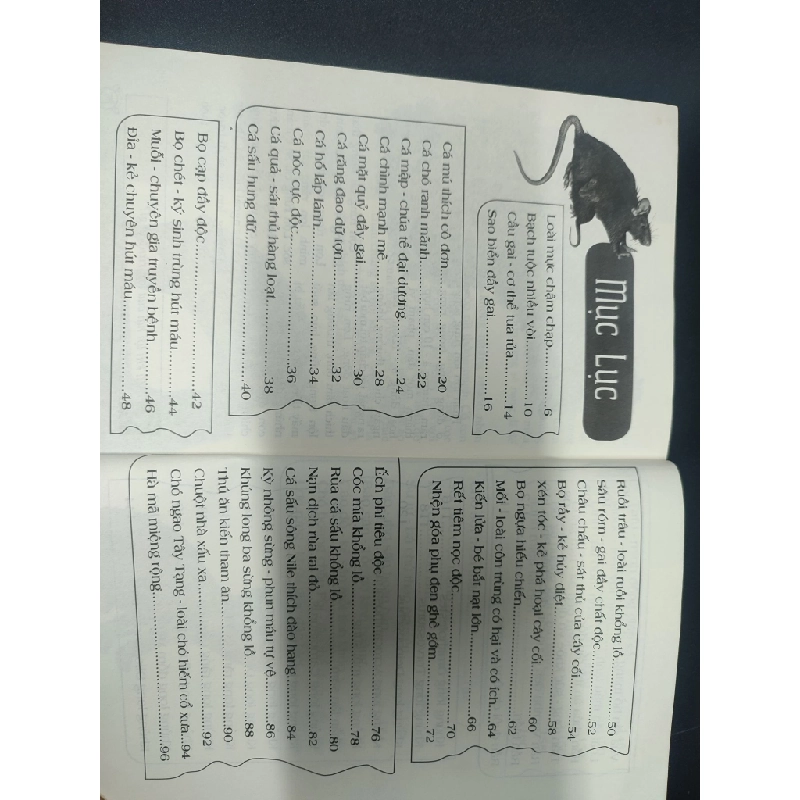 Mục Lục
Loài mực chậm chạp..............6
Bạch tuộc nhiều vòi..............10
Cầu gai - cơ thể tua tủa.......14
Sao biển đầy gai..................16
Cá mú thích cô đơn..............20
Cá chó ranh mãnh..............22
Cá mập - chúa tể đại dương..............24
Cá chình mạnh mẽ..............28
Cá mặt quỷ đầy gai..............30
Cá răng đao dữ tợn..............32
Cá hố lấp lánh..............34
Cá nóc cực độc..............36
Cá quả - sát thủ hàng loạt..............38
Cá sấu hung dữ..............40
Bọ cạp đầy độc..............42
Bọ chét - ký sinh trùng hút máu..........44
Muỗi - chuyên gia truyền bệnh..........46
Đỉa - kẻ chuyên hút máu..............48
Ruồi trâu - loài ruồi khổng lồ..............50
Sâu róm - gai đầy chất độc..............52
Châu chấu - sát thủ của cây cối..........54
Bọ rầy - kẻ hủy diệt..............58
Xén tóc - kẻ phá hoại cây cối..............60
Bọ ngựa hiếu chiến..............62
Mối - loài côn trùng có hại và có ích....64
Kiến lửa - bé bắt nạt lớn..............66
Rết tiêm nọc độc..............70
Nhện góa phụ đen ghê gớm..............72
Ếch phi tiêu độc ..............76
Cóc mía khổng lồ..............78
Rùa cá sấu khổng lồ..............80
Nạn dịch rùa tai đỏ..............82
Cá sấu sông Nile thích đào hang..........84
Kỳ nhông sừng - phun máu tự vệ........86
Khủng long ba sừng khổng lồ..............88
Thú ăn kiến tham ăn..............90
Chuột nhà xấu xa..............92
Chó ngao Tây Tạng - loài chó hiếm cổ xưa...94
Hà mã miệng rộng..............96